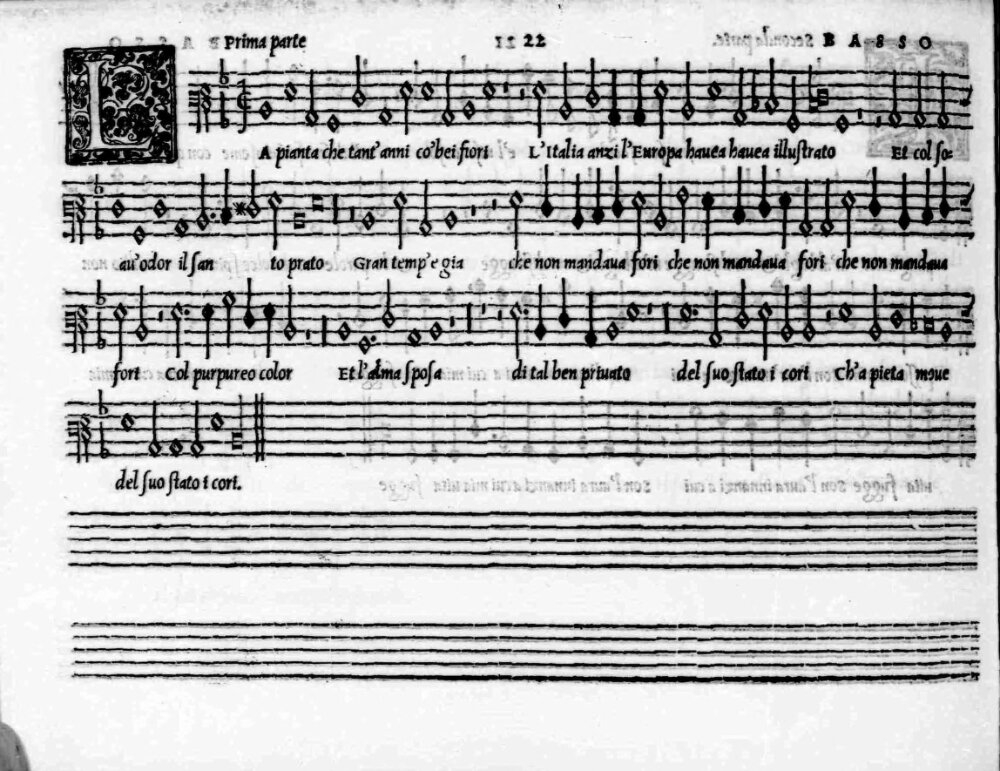 Prima parte 22 BASSO
LA pianta che tant'anni co'bei fiori L'Italia anzi l'Europa hauea hauea illuſtrato Et col ſo-
au'odor il ſan to prato Gran temp'e gia che non mandaua fori che non mandaua fori che non mandaua
fori Col purpureo color Et l'alma ſpoſa di tal ben priuato del ſuo ſtato i cori Ch'a pieta moue
del ſuo ſtato i cori.